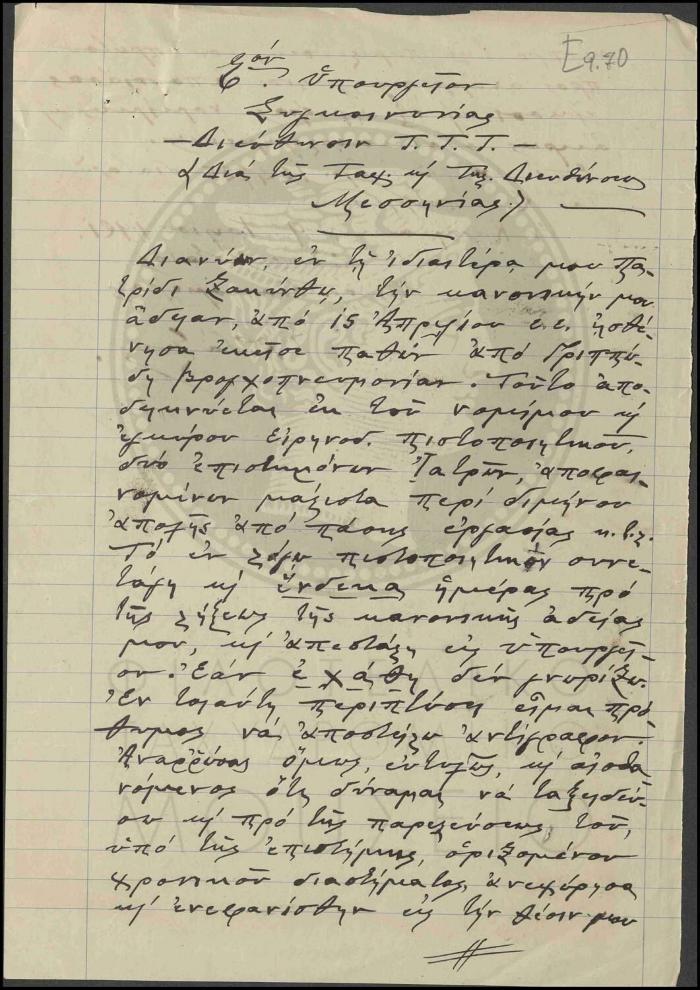 E9.70
Σ^όν. Ὑπουργεῖον
Συγκοινωνίας
– Διεύθυνσιν Τ.Τ.Τ. –
(Διά τῆς Ταχ. κ Τηλ. Διευθύνσεως
Μεσσηνίας.)
Διανύων, ἐν τῇ ἰδιαιτέρᾳ μου Πα-
τρίδι Ζακύνθῳ, τήν κανονικήν μου
ἄδειαν, ἀπό 15 Ἀπριλίου ἐ.ἔ. ἠσθέ-
νησα ἐκεῖσε παθών ἀπό Γριππώ-
δη βρογχοπνευμονίαν. Τοῦτο ἀπο-
δεικνύεται ἐκ τοῦ νομίμου κ
ἐγκύρου εἰρηνοδ. πιστοποιητικοῦ,
δύο ἐπιστημόνων Ἰατρῶν, ἀποφαι-
νομένων μάλιστα περί διμήνου
ἀποχῆς ἀπό πάσης ἐργασίας κ.τ.λ.
Τό ἐν λόγῳ πιστοποιητικόν συνε-
τάγη κ ἕνδεκα ἡμέρας πρό
τῆς λήξεως τῆς κανονικῆς ἀδείας
μου, κ ἀπεστάλη εἰς Ὑπουργεῖ-
ον. Ἐάν ἐχάθη δέν γνωρίζω.
Ἐν τοιαύτῃ περιπτώσει εἶμαι πρό-
θυμος νά ἀποστείλω ἀντίγραφον.
Ἀναρρώσας ὅμως, εὐτυχῶς, κ αἰσθα
νόμενος ὅτι δύναμαι νά ταξειδεύ-
σω κ πρό τῆς παρελεύσεως, τοῦ,
ὑπό τῆς ἐπιστήμης, ὁριζομένου
χρονικοῦ διαστήματος, ἀνεχώρησα
κ ἐνεφανίσθην εἰς τήν θέσιν μου